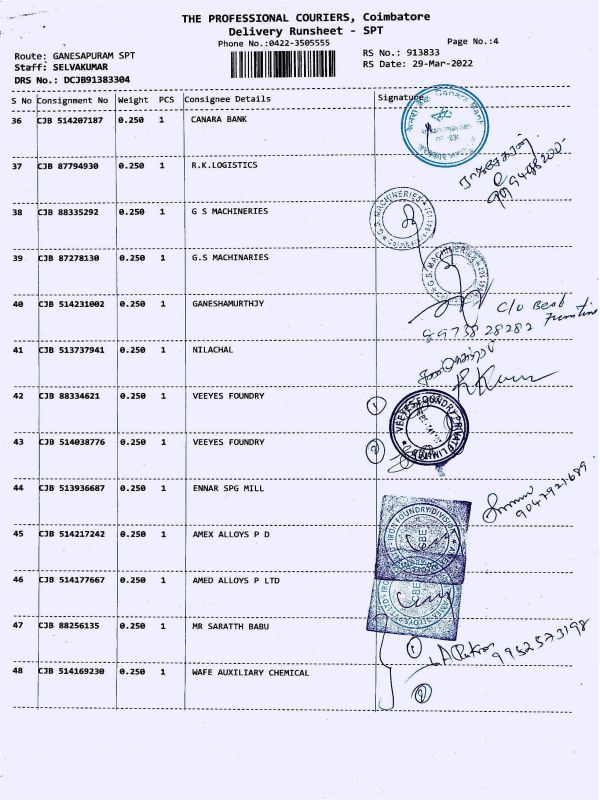 THE PROFESSIONAL COURIERS, Coimbatore
Delivery Runsheet - SPT
Phone No.:0422-3505555
Page No.:4
Route: GANESAPURAM SPT
RS No.: 913833
Staff: SELVAKUMAR
RS Date: 29-Mar-2022
DRS No.: DCJB91383304
S No Consignment No Weight PCS Consignee Details Signature
36 CJB 514207187 0.250 1 CANARA BANK
37 CJB 87794930 0.250 1 R.K.LOGISTICS
38 CJB 88335292 0.250 1 G S MACHINERIES
39 CJB 87278130 0.250 1 G.S MACHINARIES
40 CJB 514231002 0.250 1 GANESHAMURTHJY
c/o Best
9973828282
41 CJB 513737941 0.250 1 NILACHAL
42 CJB 88334621 0.250 1 VEEYES FOUNDRY
1
VEEYES FOUNDRY PRIVATE LIMITED
43 CJB 514038776 0.250 1 VEEYES FOUNDRY
2
44 CJB 513936687 0.250 1 ENNAR SPG MILL
9047921689
45 CJB 514217242 0.250 1 AMEX ALLOYS P D
46 CJB 514177667 0.250 1 AMED ALLOYS P LTD
47 CJB 88256135 0.250 1 MR SARATTH BABU
1
9952573198
48 CJB 514169230 0.250 1 WAFE AUXILIARY CHEMICAL